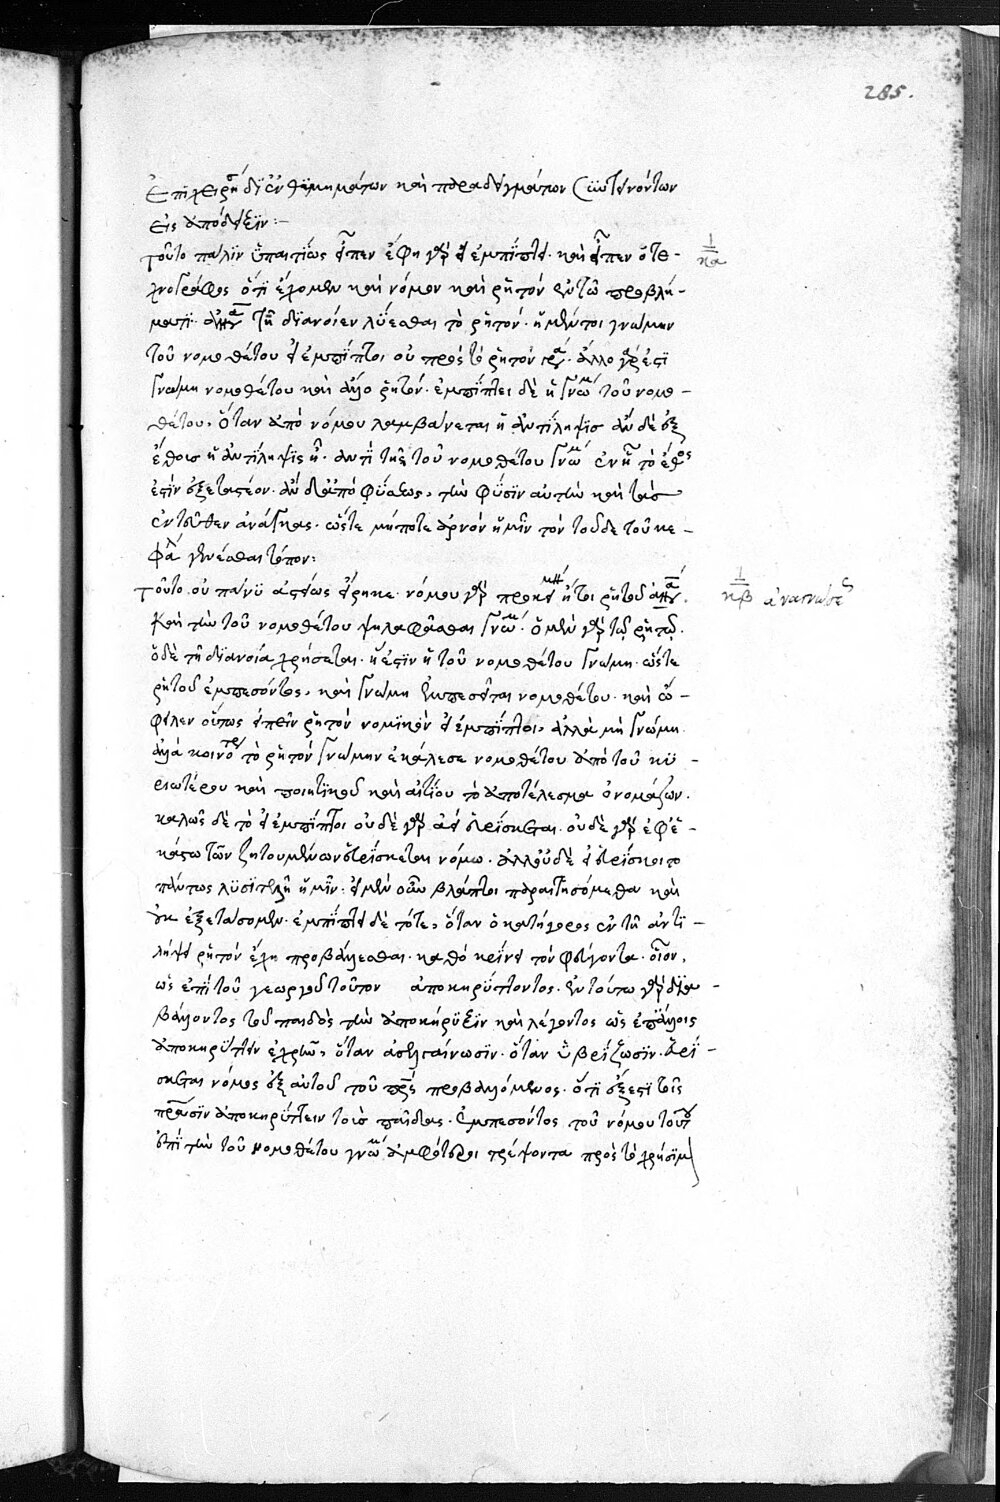 285.
ἐπιχειρη δι' ἐνθυμημάτων καὶ παραδειγμάτων συντεινόντων
εἰς ἀπόδειξιν:—
τοῦτο πάλιν ὑπαιτίως εἶπεν ἔφη γὰρ εἰ ἐμπίπτει. καὶ εἶπεν ὁ τε-
χνογράφος ὅτι ἔχομεν καὶ νόμον καὶ ῥητόν ἐν τῷ προβλή-
ματι. τῇ διανοίᾳ λύεσθαι τὸ ῥητόν. ἡ μέντοι γνώμην
τοῦ νομοθέτου εἰ ἐμπίπτοι οὐ πρὸς τὸ ῥητόν. ἄλλο γάρ ἐστι
γνώμη νομοθέτου καὶ ἄλλο ῥητόν. ἐμπίπτει δὲ ἡ γνώμ τοῦ νομο-
θέτου, ὅταν ἀπὸ νόμου λαμβάνεται ἡ ἀντίληψις ἂν δὲ ἐξ
ἔθους ἡ ἀντίληψις ᾖ. ἀντὶ τῆς τοῦ νομοθέτου γνώμ ἐν ᾗ τὸ ἔθος
ἐστὶν ἐξεταστέον. ἂν δὲ ἀπὸ φύσεως, τὴν φύσιν αὐτὴν καὶ τὰς
ἐντεῦθεν ἀνάγκας. ὥστε μήποτε ἀργὸν ἡμῖν τὸν τοῦδε τοῦ κε-
φαλ γενέσθαι τόπον:
κα
τοῦτο οὐ πάνυ ἀστείως εἴρηκε. νόμου γὰρ προκειμ ἤτοι ῥητοῦ
κβ
καὶ τὴν τοῦ νομοθέτου ψηλαφᾶσθαι γνώμ. ὁ μὲν γὰρ τῷ ῥητῷ.
ὁ δὲ τῇ διανοίᾳ χρήσεται. ἥ ἐστιν ἡ τοῦ νομοθέτου γνώμη. ὥστε
ῥητοῦ ἐμπεσόντος, καὶ γνώμη ἐμπεσεῖται νομοθέτου. καὶ ὤ-
φειλεν οὕτως εἰπεῖν ῥητὸν νομικὸν εἰ ἐμπίπτοι, ἀλλὰ μὴ γνώμη.
ἀλλὰ κοινότερ τὸ ῥητὸν γνώμην ἐκάλεσε νομοθέτου ἀπὸ τοῦ κυ-
ριωτέρου καὶ ποιητικοῦ καὶ αἰτίου τὸ ἀποτέλεσμα ὀνομάζων.
καλῶς δὲ τὸ εἰ ἐμπίπτοι οὐδὲ γὰρ ἀεὶ εὑρίσκεται. οὐδὲ γὰρ ἐφ' ἑ-
κάστω τῶν ζητουμένων εὑρίσκεται νόμω. ἀλλ' οὐδὲ εἰ εὑρίσκοιτο
πάντως λυσιτελῆ ἡμῖν. εἰ μὲν οὖν βλάπτοι παραιτησόμεθα καὶ
οὐκ ἐξετάσομεν. ἐμπίπτει δὲ τότε, ὅταν ὁ κατήγορος ἐν τῇ ἀντι-
λήψει ῥητόν ἔχῃ προβάλλεσθαι. καθὸ κρίνει τὸν φεύγοντα. οἷον,
ὡς ἐπὶ τοῦ γεωργοῦ τοῦτον ἀποκηρύττοντος. ἐν τούτω γὰρ δια-
βάλλοντος τοῦ παιδὸς τὴν ἀποκήρυξιν καὶ λέγοντος ὡς ἐπ' ἄλλοις
ἀποκηρύττειν ἐχρῆν, ὅταν ἀσελγαίνωσιν. ὅταν ὑβρίζωσιν. εὑρί-
σκεται νόμος ἐξ αὐτοῦ τοῦ πρς προβαλλόμενος. ὅτι ἔξεστι τοῖς
πρασιν ἀποκηρύττειν τοὺς παῖδας. ἐμπεσόντος τοῦ νόμου τούτ
ἐπὶ τὴν τοῦ νομοθέτου γνώμ ἀμφότεροι τρέψονται πρὸς τὸ χρήσιμ